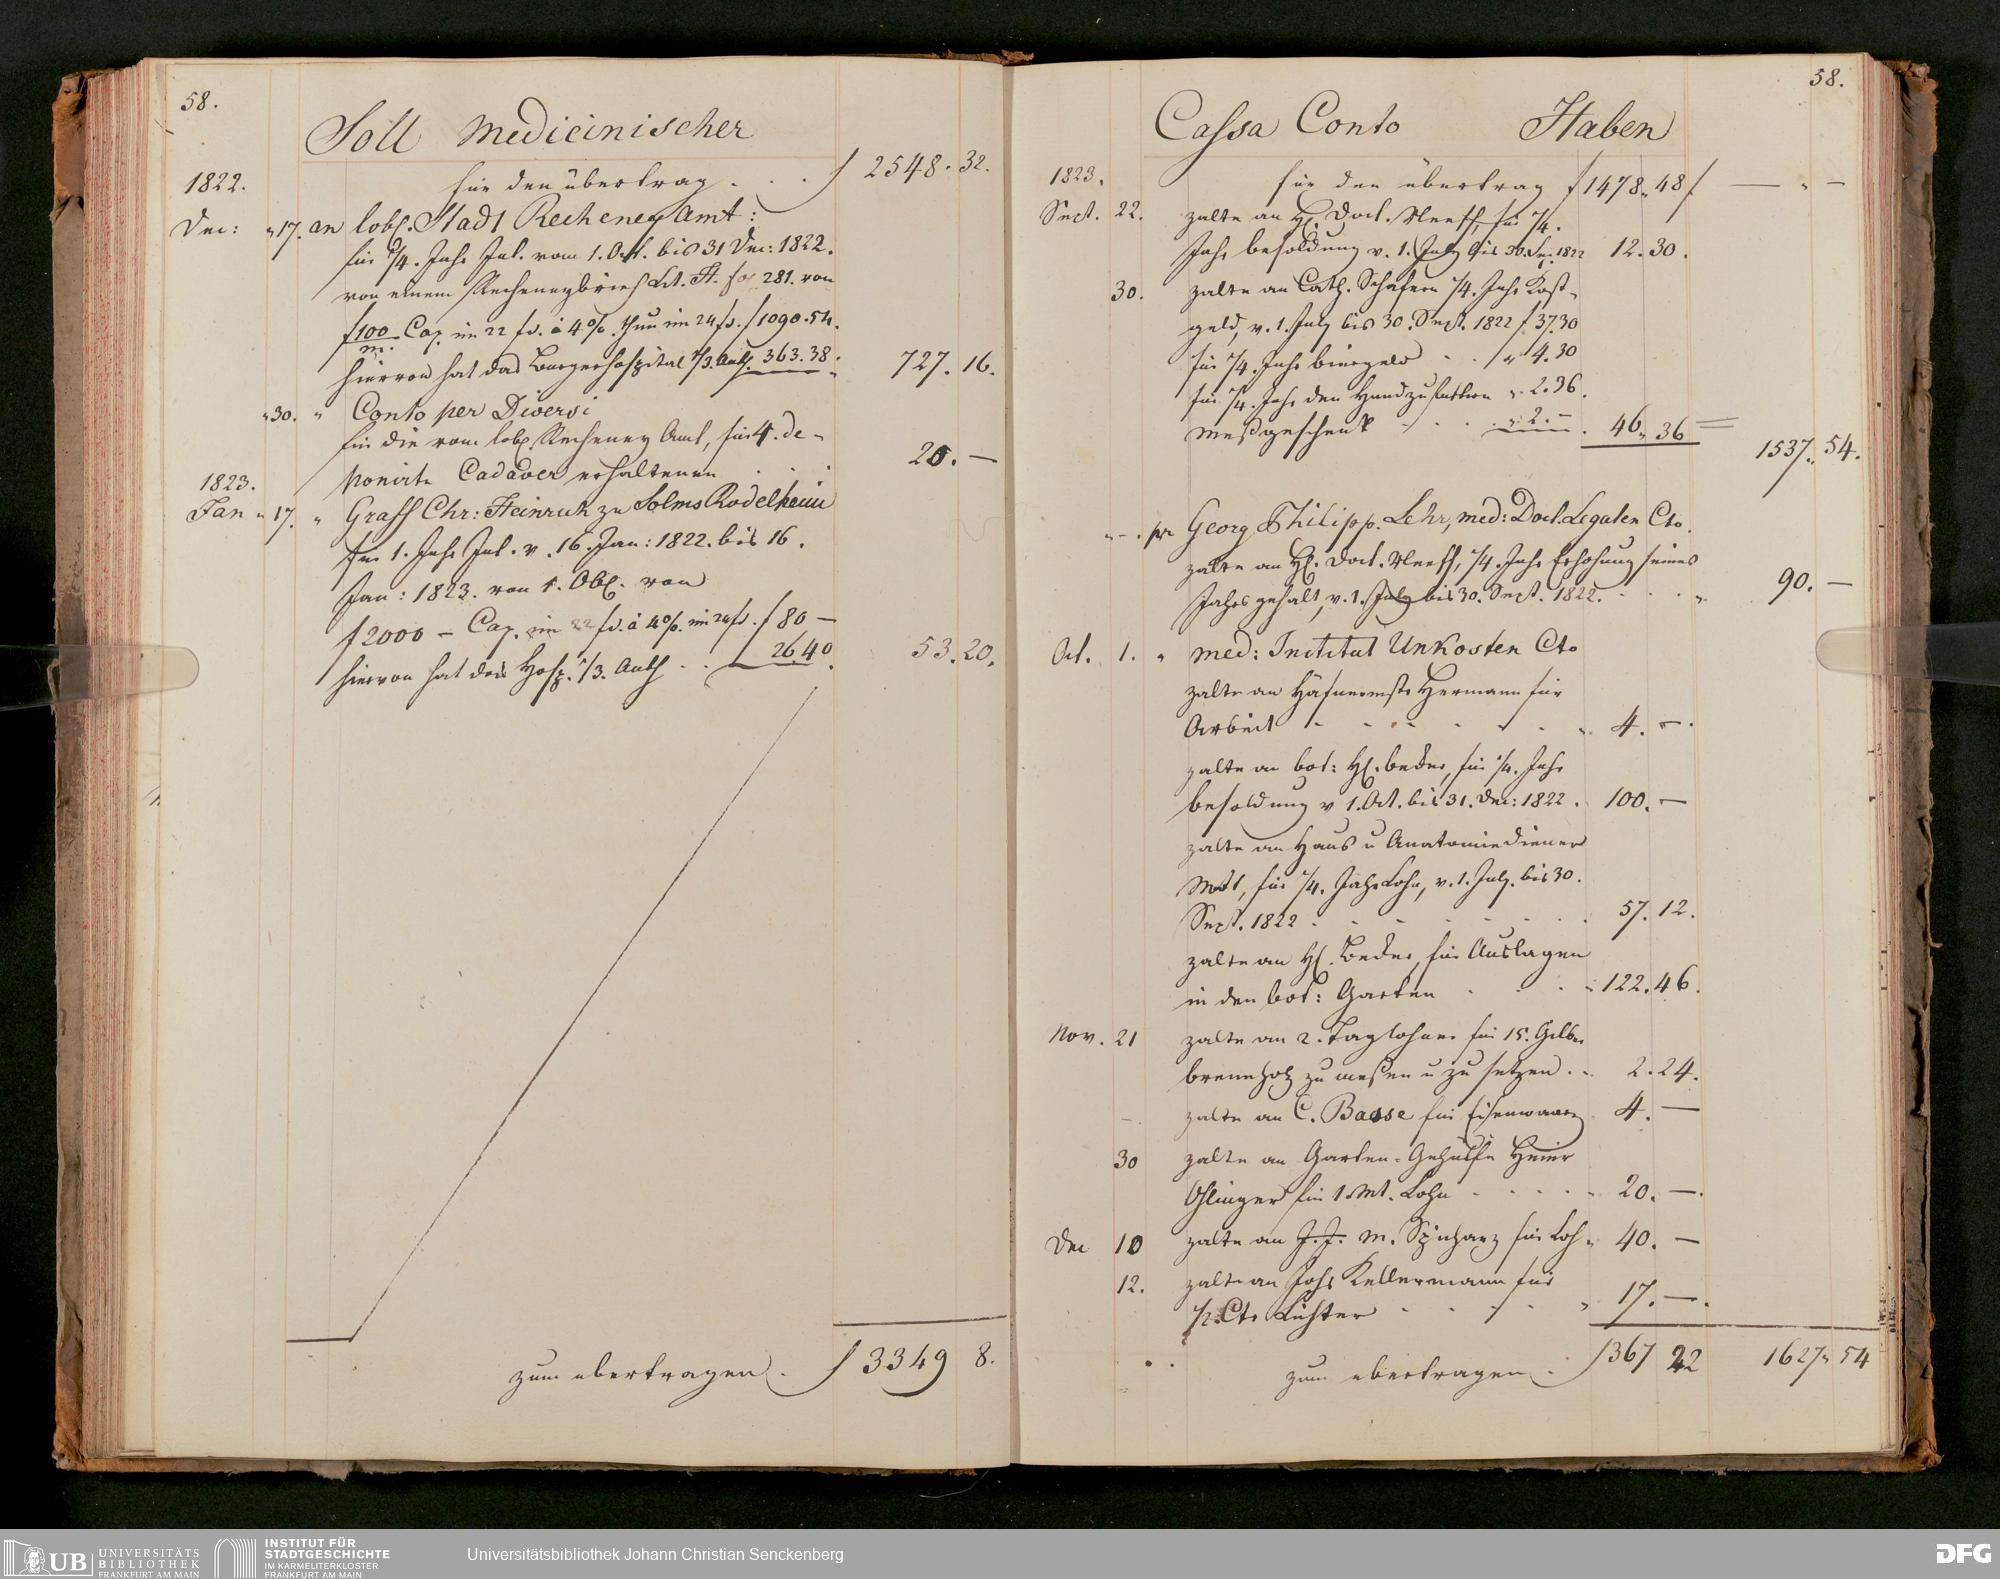 58.
Soll Medicinischer
1822. für den übertrag . . . f 2548. 32.
Dec: " 17. an lobl. Stadt Recheney Amt:
für 1/4. Jahr Int. vom 1. Oct. bis 31 Dec: 1822.
von einem Recheneybrief Lit. H. fo 281. von
f 100/m. Cap. im 22 fl. à 4 %. thun im 24 fl. f 1090. 54.
hiervon hat das Burgerhospital 1/3. Anth. 363. 38. 727. 16.
" 30. " Conto per Diversi
für die vom lobl. Recheney Amt, für 4. de-
ponirte Cadaver erhaltenen . . . 20. —
1823.
Jan " 17. " Graff Chr: Heinrich zu Solms Rodelheim
für 1. Jahr Int. v. 16. Jan: 1822. bis 16.
Jan: 1823. von 1. Obl. von
f 2000 — Cap. im 22 fl. à 4 %. im 24 fl. f 80 —
hiervon hat das Hosp. 1/3. Anth . . 26.40. 53. 20.
zum ubertragen . f 3349 8.
58.
Cassa Conto Haben
1823. für den übertrag f 1478. 48 f — " —
Sept. 22. zalte an H. Doct. Neeff, für 1/4.
Jahr besoldung v. 1. July bis 30. Sep. 1822 12. 30.
30. zalte an Cath. Schäfern 1/4. Jahr Kost-
geld, v. 1. July bis 30. Sept. 1822 f 37.30
für 1/4. Jahr biergeld . . " 4.30
für 1/4. Jahr den Hund zu futtern " 2.36.
Meßgeschenk . . . " 2. — . 46. 36 1537. 54.
" — . pr Georg Philipp. Lehr, med: Doct. Legaten Cto.
zalte an H. Doct. Neeff, 1/4. Jahr Erhohung seines
Jahrsgehalt, v. 1. July bis 30. Sept. 1822. . . . " 90. —
Oct. 1. " med: Institut Unkosten Cto
zalte an Häfnermstr Hermann für
Arbeit . . . . . . " 4. — .
zalte an bot: H. beker, für 1/4. Jahr
besoldung v 1. Oct. bis 31. Dec: 1822 . 100. —
zalte an Haus u Anatomiediener
Mott, für 1/4. Jahr Lohn, v. 1. July. bis 30.
Sept. 1822 . . . . . . 57. 12.
zalte an H. Beker, für Auslagen
in den bot: Garten . . . " 122. 46.
Nov. 21 zalte an 2. Taglohner für 15. Gilber
brennholz zu meßen u zu setzen . " 2. 24.
zalte an C. Basse für Eisenwaare 4. —
30 zalte an Garten-Gehülfe Heinr
Ohlinger für 1 Mt. Lohn . . . . " 20. — .
Dec 10 zalte an J. J. M. Spicharz für Loh " 40. —
12. zalte an Johs Kellermann für
1/2. Ctr Lichter . . . . " 17. — .
zum ubertragen . f 367 22 1627. 54
UB UNIVERSITÄTS
BIBLIOTHEK
FRANKFURT AM MAIN
INSTITUT FÜR
STADTGESCHICHTE
IM KARMELITERKLOSTER
FRANKFURT AM MAIN
Universitätsbibliothek Johann Christian Senckenberg
DFG